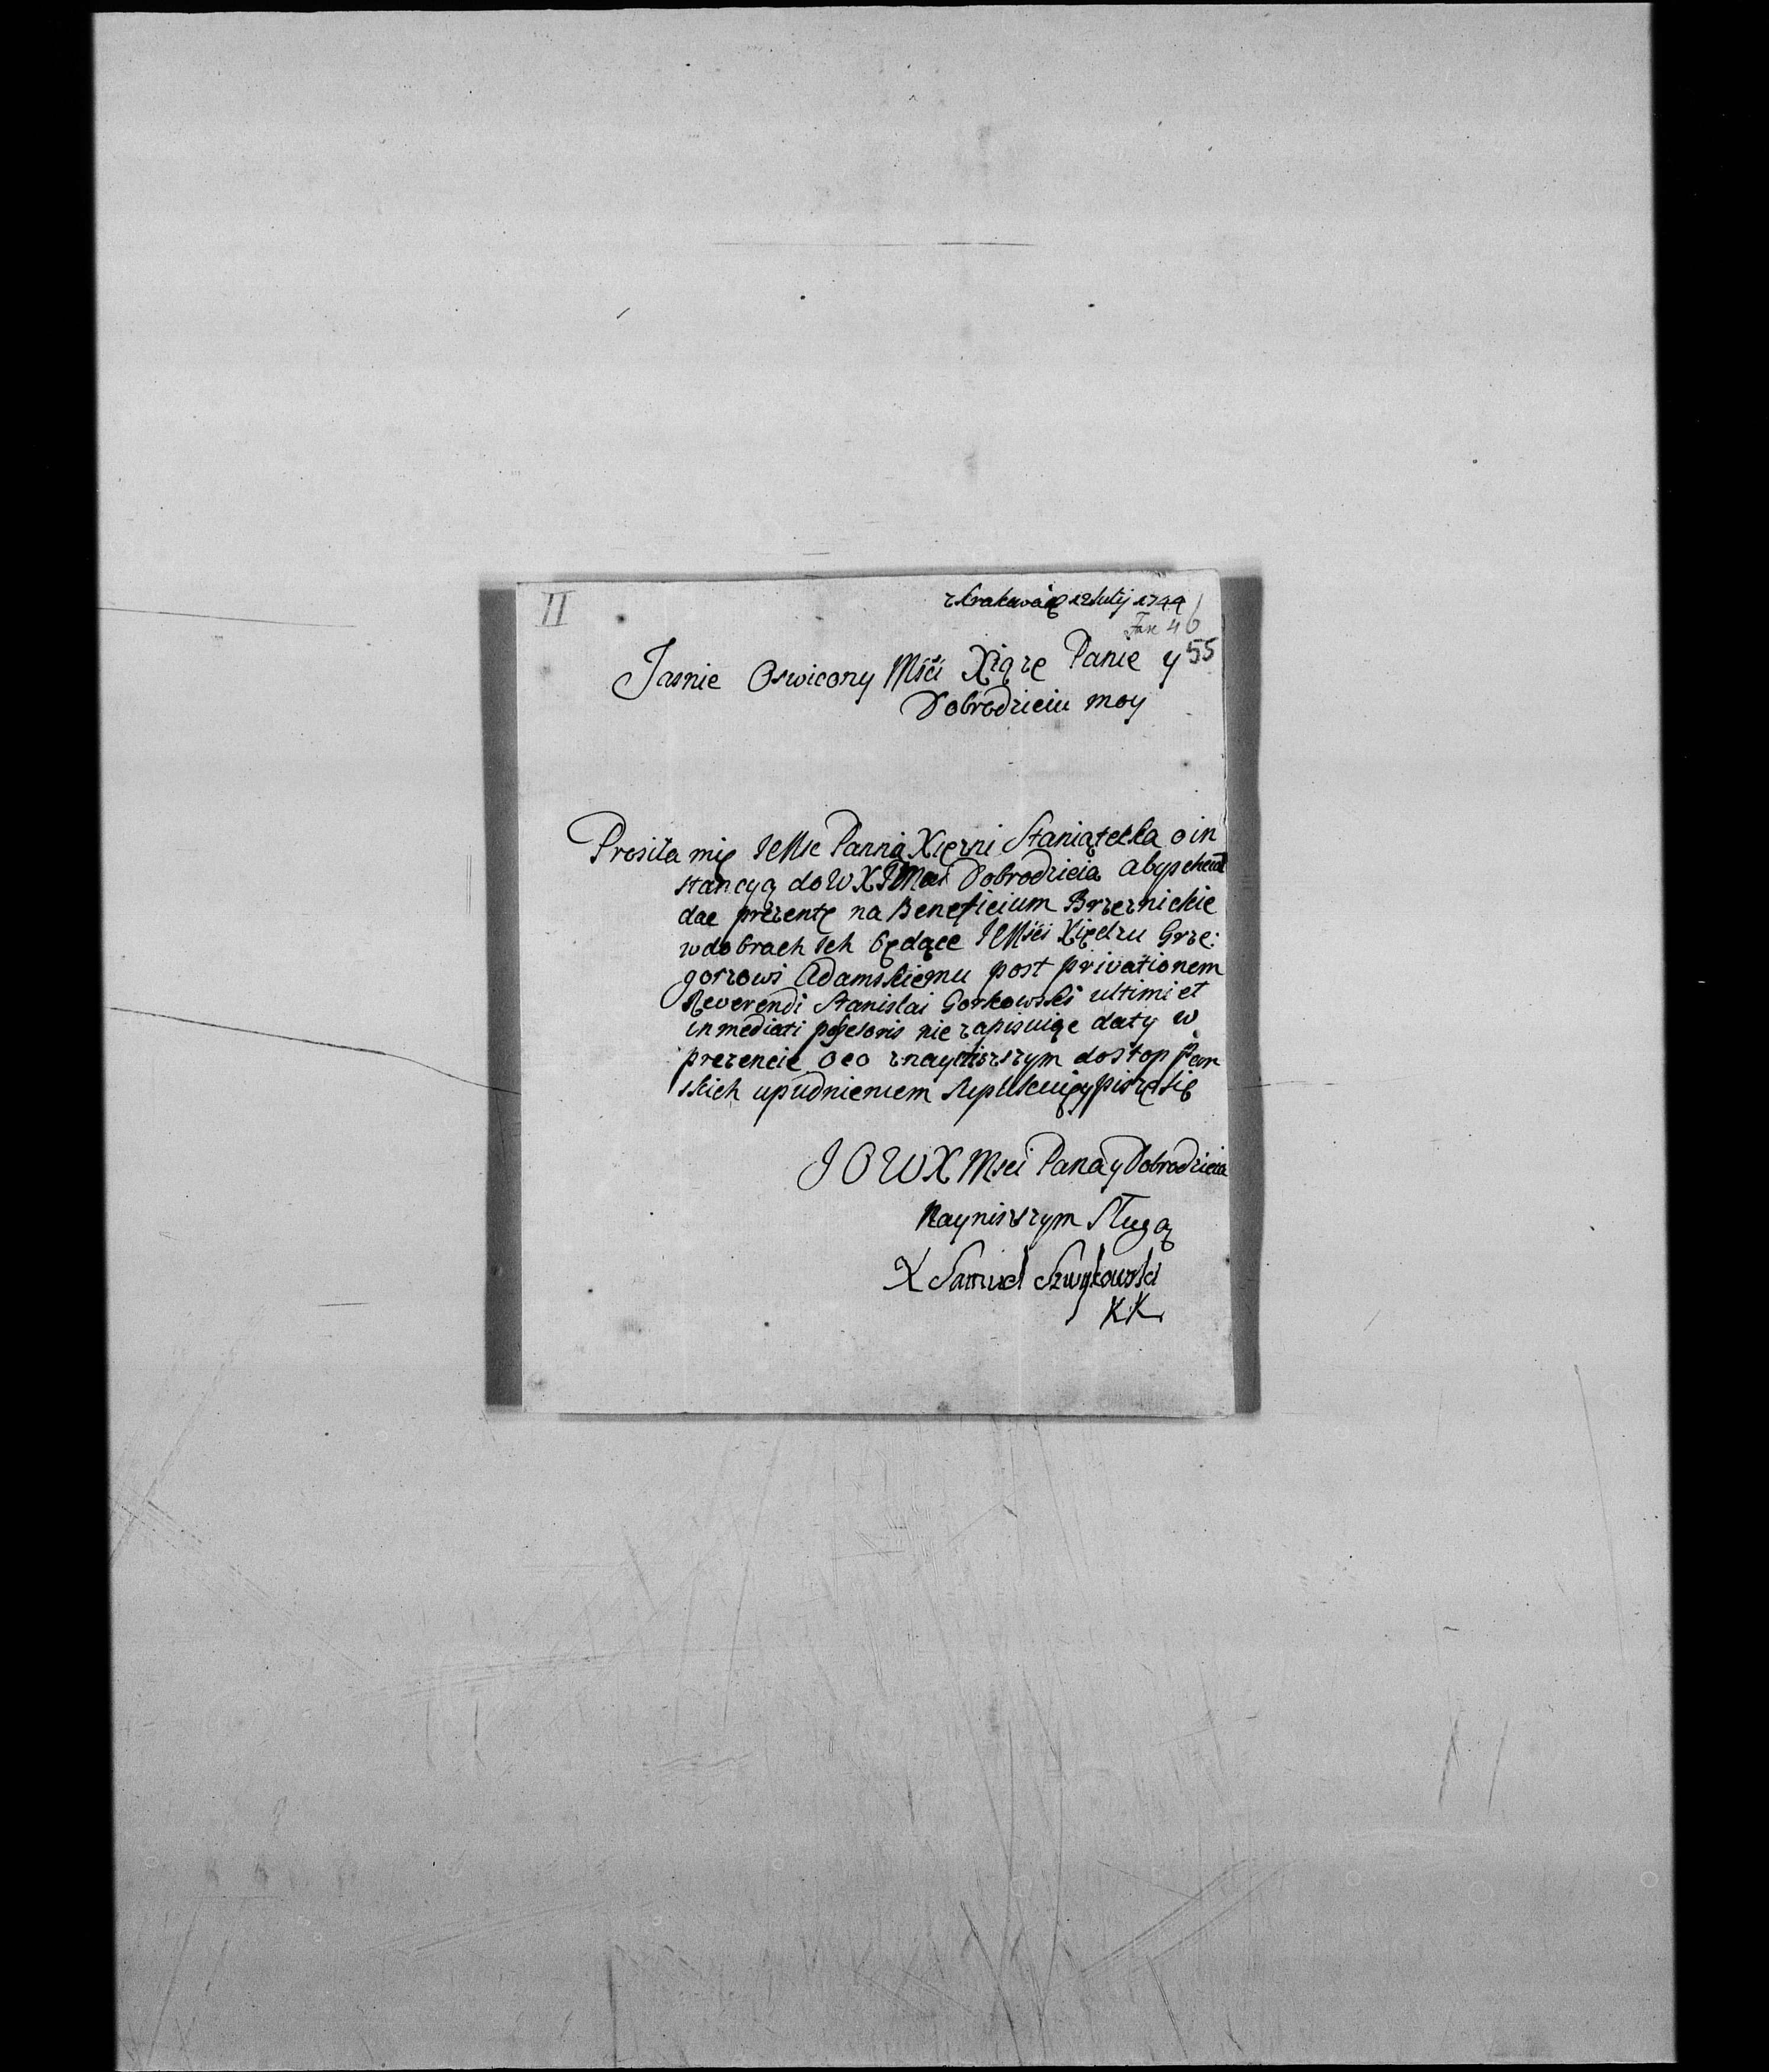 II
z Krakowa 12 Lutij 1744
Fasc 46
55
Jasnie Oswicony Mści Xiąze Panie y
Dobrodzieiu moy
Prosiła mię JeMsc Panna Xięzni Staniątecka o in
stancyą do WX JMci Dobrodzieia abys chciał
dac prezentę na Beneficium Brzeznickie
w dobrach ich będące JeMści Xiędzu Grze:
gorzowi Adamskiemu post privationem
Reverendi Stanislai Gorkowski ultimi et
inmediati possesoris nie zapisuiąc daty w
prezencie oco z nayniszszym do stop Pan
skich upadnieniem suplikuię y piszę się
J O W X Msci Pana y Dobrodzieia
Nayniszszym Sługą
X Samuel Szwykowski
KK.